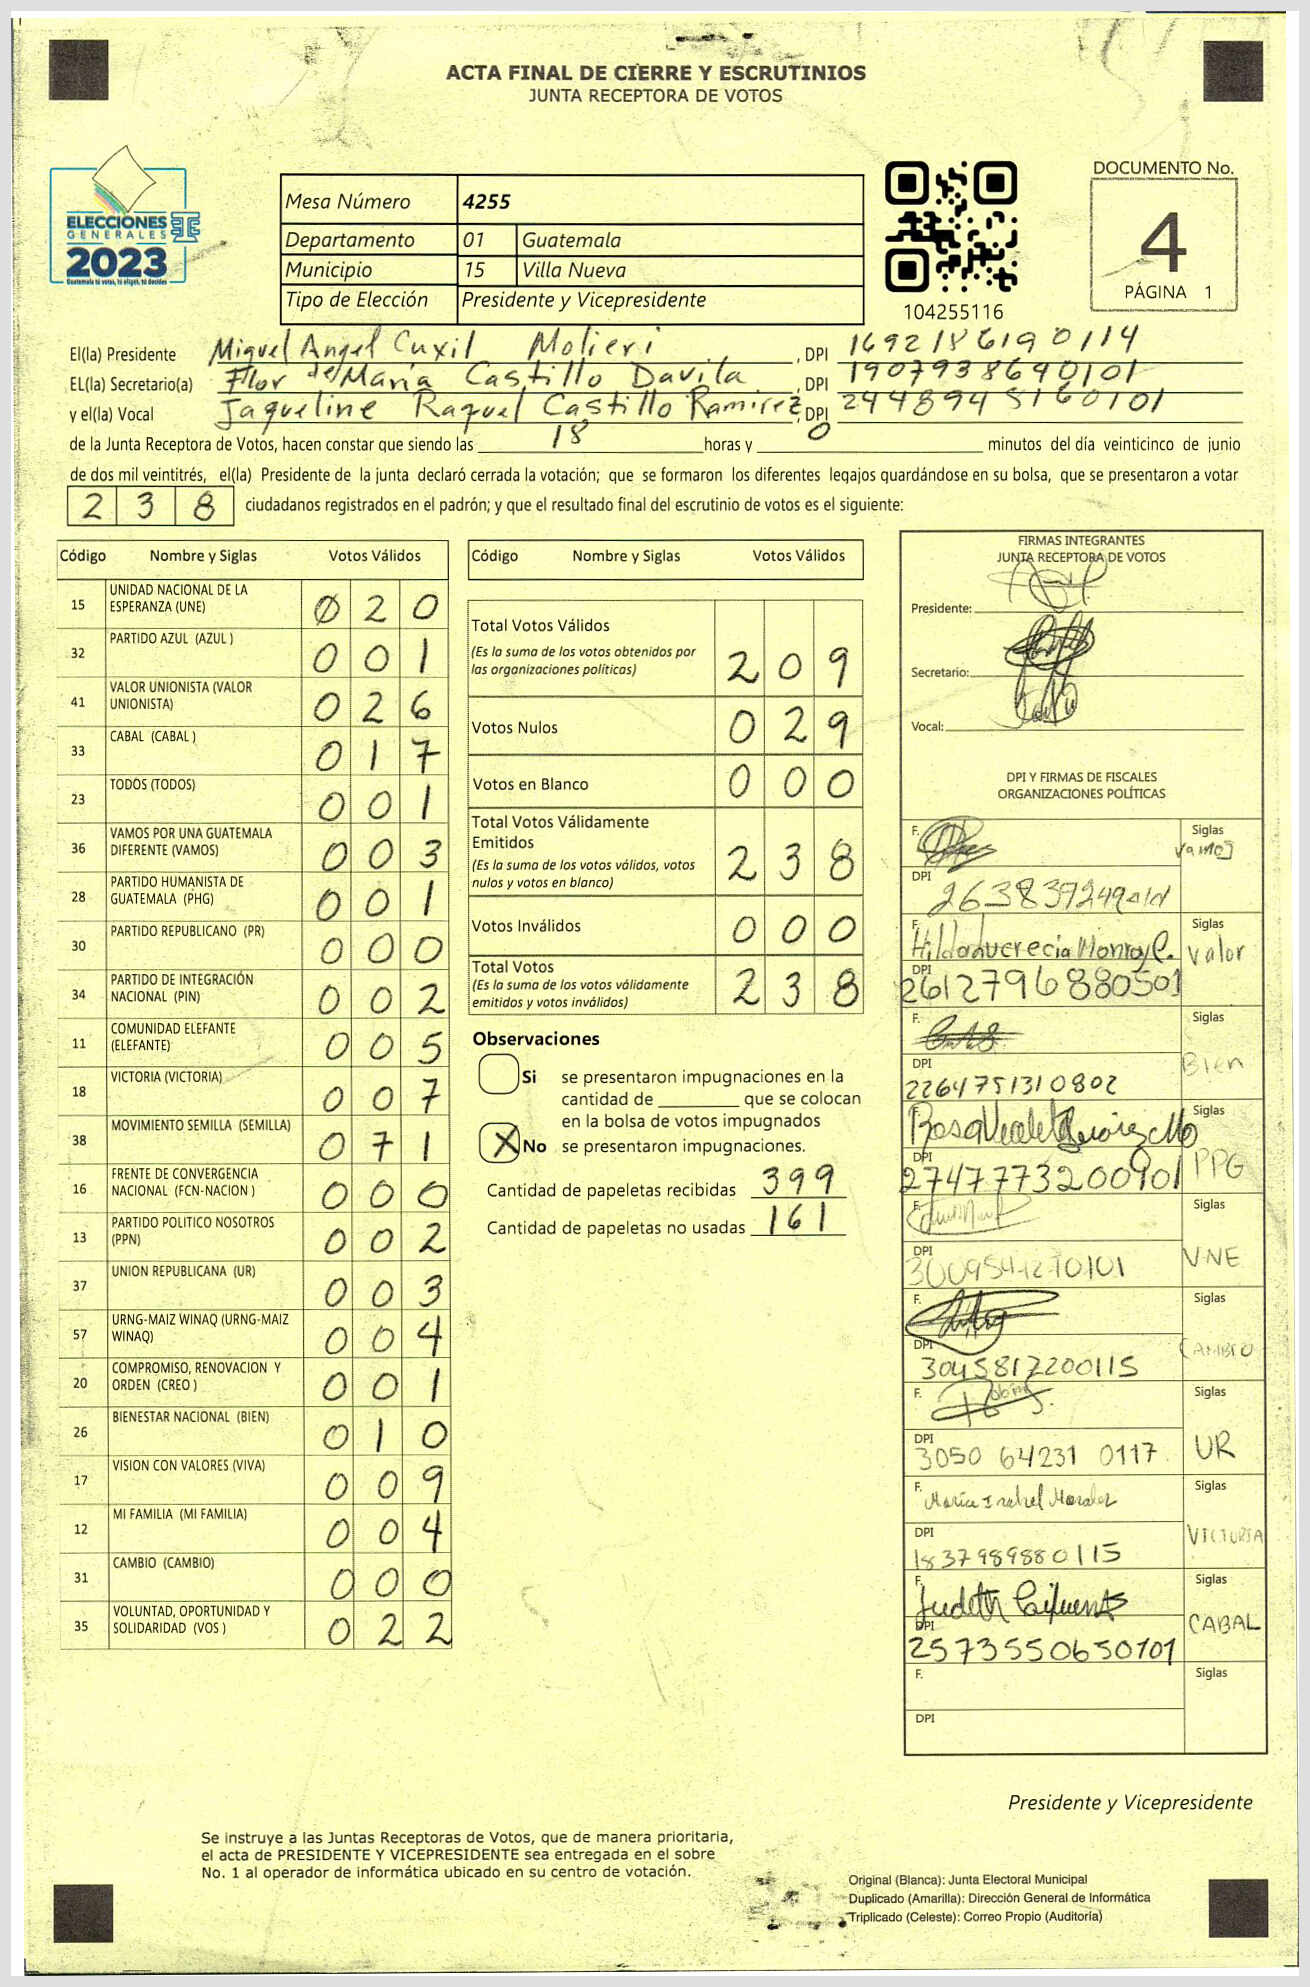 ACTA FINAL DE CIERRE Y ESCRUTINIOS
JUNTA RECEPTORA DE VOTOS
ELECCIONES
GENERALES
2023
Guatemala tú votas, tú eliges, tú decides
Mesa Número 4255
Departamento 01 Guatemala
Municipio 15 Villa Nueva
Tipo de Elección Presidente y Vicepresidente
104255116
DOCUMENTO No.
4
PÁGINA 1
El(la) Presidente Miguel Angel Cuxil Molieri, DPI 1692186190114
EL(la) Secretario(a) Flor de María Castillo Davila, DPI 1907938640101
y el(la) Vocal Jaqueline Raquel Castillo Ramirez, DPI 2448945160101
de la Junta Receptora de Votos, hacen constar que siendo las 18 horas y 0 minutos del día veinticinco de junio
de dos mil veintitrés, el(la) Presidente de la junta declaró cerrada la votación; que se formaron los diferentes legajos quardándose en su bolsa, que se presentaron a votar
238 ciudadanos registrados en el padrón; y que el resultado final del escrutinio de votos es el siguiente:
Código Nombre y Siglas Votos Válidos
15 UNIDAD NACIONAL DE LA ESPERANZA (UNE) 020
32 PARTIDO AZUL (AZUL ) 001
41 VALOR UNIONISTA (VALOR UNIONISTA) 026
33 CABAL (CABAL ) 017
23 TODOS (TODOS) 001
36 VAMOS POR UNA GUATEMALA DIFERENTE (VAMOS) 003
28 PARTIDO HUMANISTA DE GUATEMALA (PHG) 001
30 PARTIDO REPUBLICANO (PR) 000
34 PARTIDO DE INTEGRACIÓN NACIONAL (PIN) 002
11 COMUNIDAD ELEFANTE (ELEFANTE) 005
18 VICTORIA (VICTORIA) 007
38 MOVIMIENTO SEMILLA (SEMILLA) 071
16 FRENTE DE CONVERGENCIA NACIONAL (FCN-NACION ) 000
13 PARTIDO POLITICO NOSOTROS (PPN) 002
37 UNION REPUBLICANA (UR) 003
57 URNG-MAIZ WINAQ (URNG-MAIZ WINAQ) 004
20 COMPROMISO, RENOVACION Y ORDEN (CREO ) 001
26 BIENESTAR NACIONAL (BIEN) 010
17 VISION CON VALORES (VIVA) 009
12 MI FAMILIA (MI FAMILIA) 004
31 CAMBIO (CAMBIO) 000
35 VOLUNTAD, OPORTUNIDAD Y SOLIDARIDAD (VOS ) 022
Código Nombre y Siglas Votos Válidos
Total Votos Válidos 209
(Es la suma de los votos obtenidos por
las organizaciones políticas)
Votos Nulos 029
Votos en Blanco 000
Total Votos Válidamente
Emitidos 238
(Es la suma de los votos válidos, votos
nulos y votos en blanco)
Votos Inválidos 000
Total Votos 238
(Es la suma de los votos válidamente
emitidos y votos inválidos)
Observaciones
Si se presentaron impugnaciones en la
cantidad de ________ que se colocan
en la bolsa de votos impugnados
X No se presentaron impugnaciones.
Cantidad de papeletas recibidas 399
Cantidad de papeletas no usadas 161
FIRMAS INTEGRANTES
JUNTA RECEPTORA DE VOTOS
Presidente:
Secretario:
Vocal:
DPI Y FIRMAS DE FISCALES
ORGANIZACIONES POLÍTICAS
F. Siglas Vamos
DPI
F. Hilda Lucrecia Monroy C. Siglas Valor
DPI 2612796880501
F. Siglas Bien
DPI 2264751310802
F. Rosa Siglas PPG
DPI 2747773200901
F. Siglas UNE
DPI
F. Siglas CAMBIO
DPI 3045817200115
F. Siglas UR
DPI 3050 64231 0117
F. María Isabel Morales Siglas VICTORIA
DPI 1837989880115
F. Judith Cifuentes Siglas CABAL
DPI 2573550650101
F. Siglas
DPI
Presidente y Vicepresidente
Se instruye a las Juntas Receptoras de Votos, que de manera prioritaria,
el acta de PRESIDENTE Y VICEPRESIDENTE sea entregada en el sobre
No. 1 al operador de informática ubicado en su centro de votación.
Original (Blanca): Junta Electoral Municipal
Duplicado (Amarilla): Dirección General de Informática
Triplicado (Celeste): Correo Propio (Auditoría)